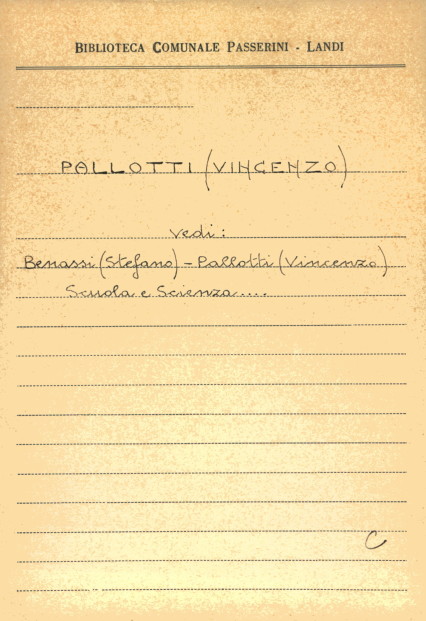 BIBLIOTECA COMUNALE PASSERINI - LANDI
PALLOTTI (VINCENZO)
vedi:
Benassi (Stefano) - Pallotti (Vincenzo)
Scuola e Scienza....
C